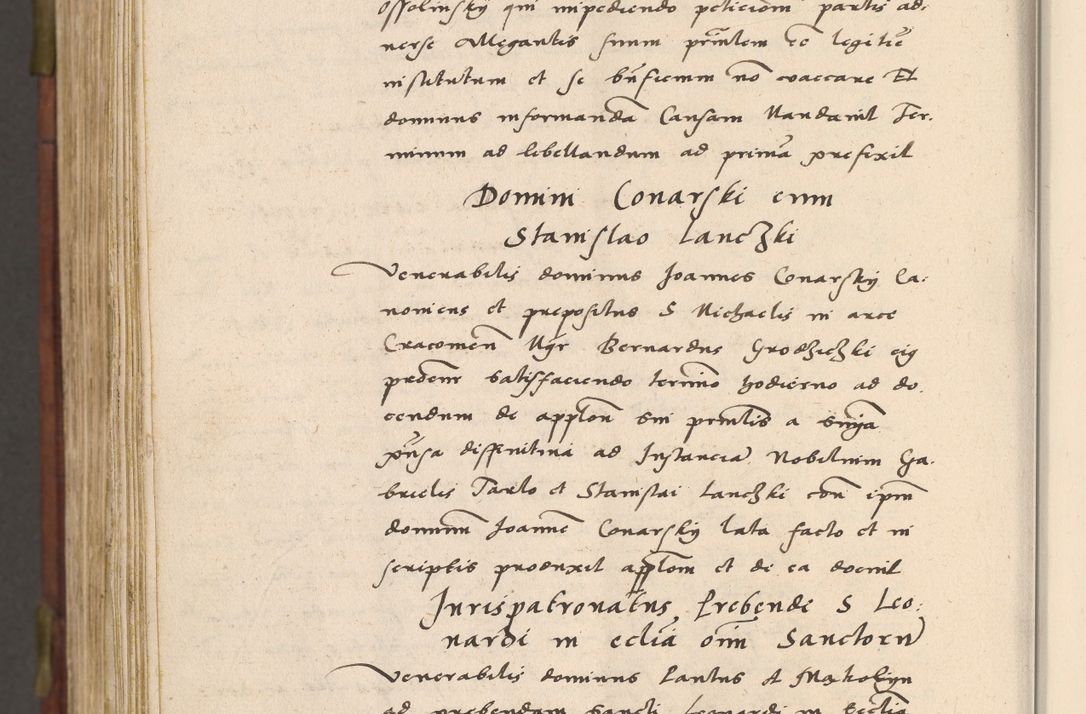 Ossolinsky qui impediendo peticioni partis ad-
verse Allegantis suum prñlem eē legitīe
institutum et se bñficium nō vaccare Et
dominus informandã Causam Mandavit Ter-
minum ad libellandum ad primã prefixit
Domini Conarski cum
Stanislao Lanczki
Venerabilis dominus Joannes Conarsky Ca-
nonicus et prepositus S Michaelis in arce
Cracovieñ Mgr Bernardus Grodzichki eig
satisfaciendo termino hodierno ad do-
cendum de applloñ sui a
diffinitiva ad Instanciã Nobilium Ga-
brielis Tarlo et Stanislai Lanczki coñ ipm̃
dominum Joannē Conarsky lata facto et in
scriptis produxit appllom et de ea docuit
Jurispatronatus Prebende S Leo-
nardi in eccliã oim̃ Sanctorũ
Venerabilis dominus Paulus A
ad prebendam Sancti Leonardi in Ecclĩa